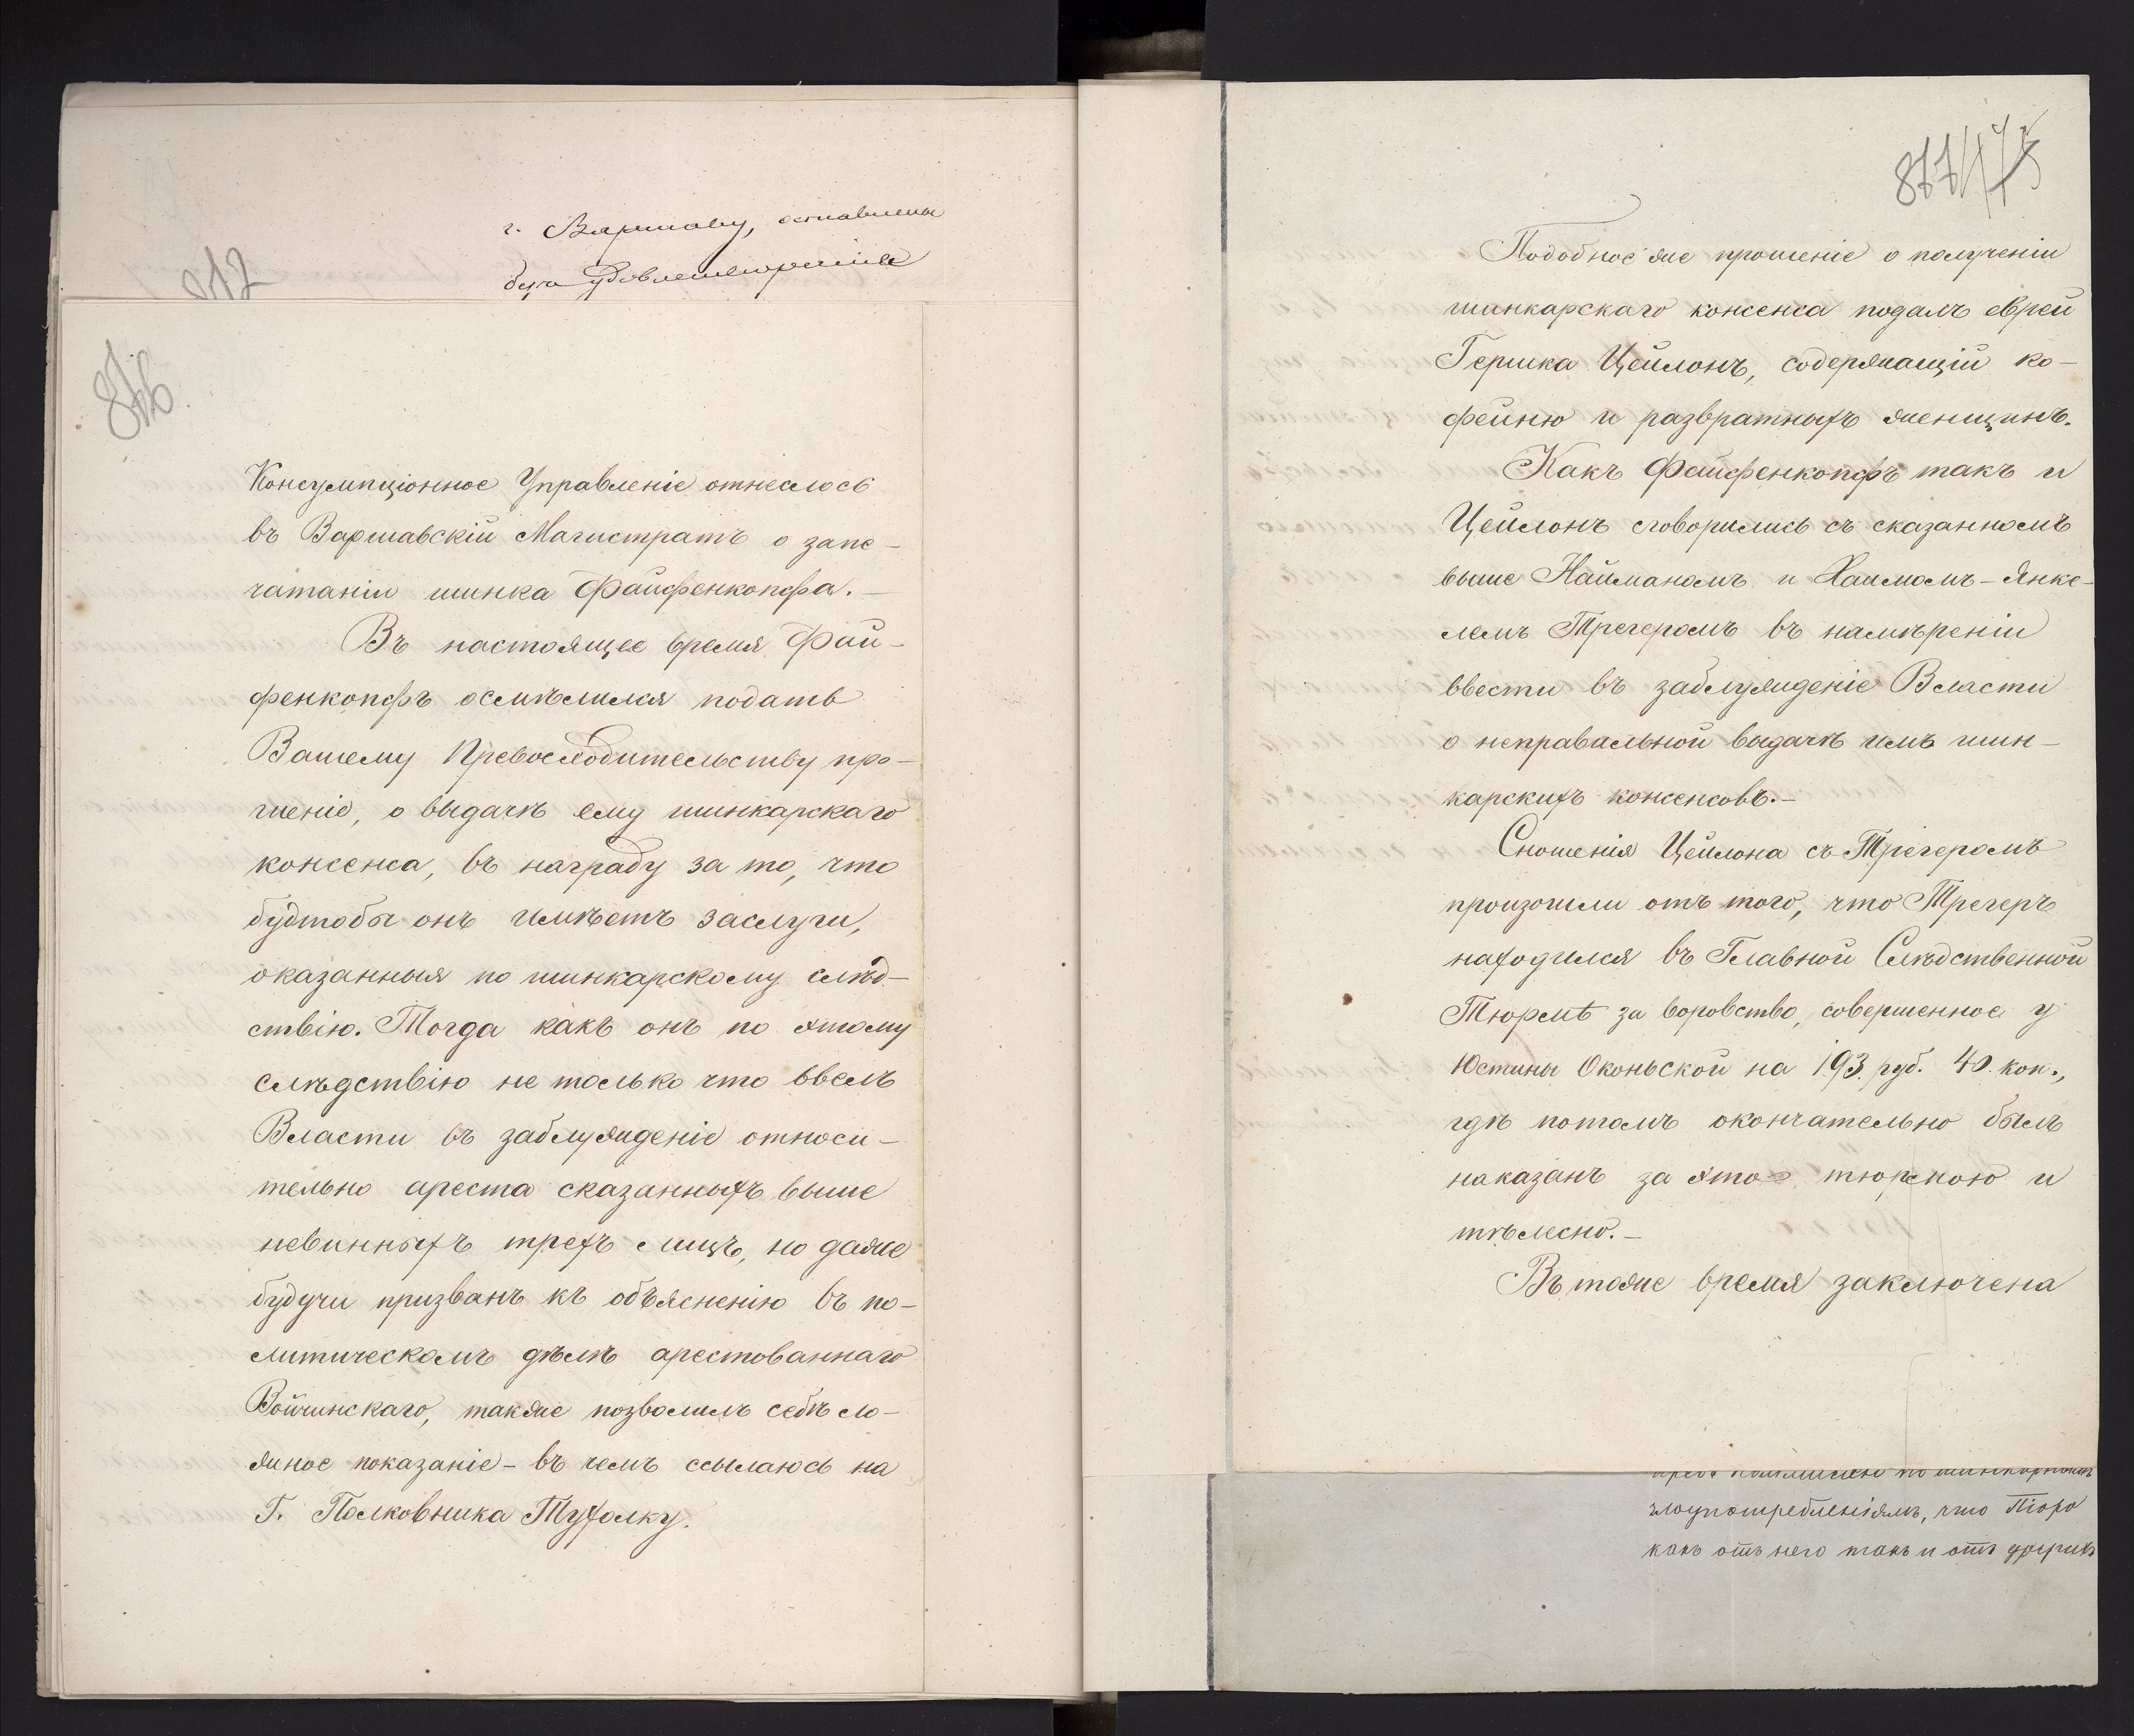 г. Варшаву, оставлены
безъ удовлетворенія
912
876.
Консумпціонное Управленіе отнеслось
въ Варшавскій Магистратъ о запе-
чатаніи шинка Файфенкопфа. -
Въ настоящее время Фай-
фенкопфъ осмѣлился подать
Вашему Превосходительству про-
шеніе, о выдачѣ ему шинкарскаго
консенса, въ награду за то, что
будтобы онъ имѣетъ заслуги,
оказанныя по шинкарскому слѣд-
ствію. Тогда какъ онъ по этому
слѣдствію не только что ввелъ
Власти въ заблужденіе относи-
тельно ареста сказанныхъ выше
невинныхъ трехъ лицъ, но даже
будучи призванъ къ объясненію въ по-
литическомъ дѣлѣ арестованнаго
Войчинскаго, также позволилъ себѣ ло-
жное показаніе - въ чемъ ссылаюсь на
Г. Полковника Тухолку.
877
Подобное же прошеніе о полученіи
шинкарскаго консенса подалъ еврей
Гершка Цейлонъ, содержащій ко-
фейню и развратныхъ женщинъ.
Какъ Файфенкопфъ такъ и
Цейлонъ сговорились съ сказаннымъ
выше Найманомъ и Хаимомъ-Янке-
лемъ Трегеромъ въ намѣреніи
ввести въ заблужденіе Власти
о неправильной выдачѣ имъ шин-
карскихъ консенсовъ. -
Сношенія Цейлона съ Трегеромъ
произошли отъ того, что Трегеръ
находился въ Главной Слѣдственной
Тюрмѣ за воровство, совершенное у
Юстины Оконьской на 193. руб. 40. коп.,
гдѣ потомъ окончательно былъ
наказанъ за это тюрмою и
тѣлесно. -
Въ тоже время заключена
злоупотребленіямъ, что Піоро
какъ отъ него такъ и отъ другихъ